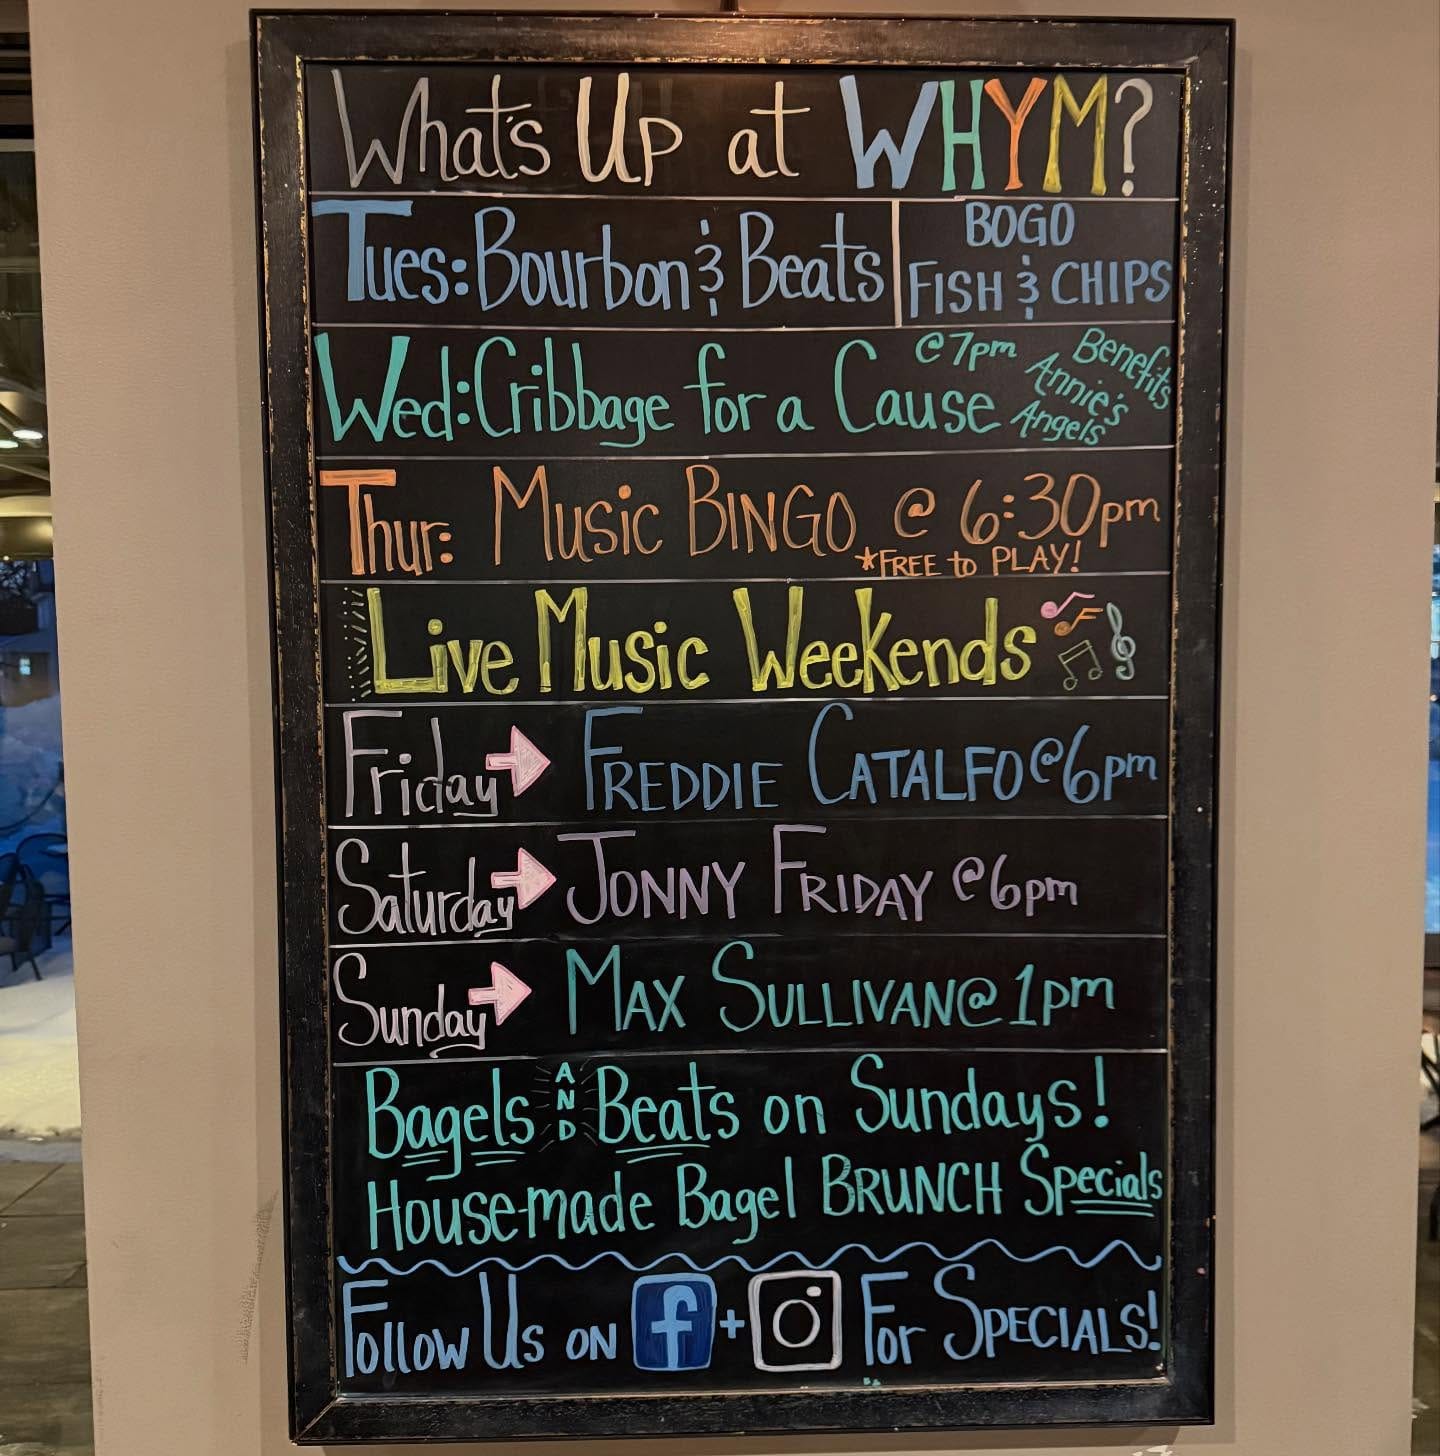 What's Up at WHYM?
Tues: Bourbon & Beats
BOGO
FISH & CHIPS
Wed: Cribbage for a Cause @7pm
Benefits
Annie's
Angels
Thur: Music BINGO @ 6:30pm
*FREE to PLAY!
Live Music Weekends
Friday FREDDIE CATALFO @6pm
Saturday JONNY FRIDAY @6pm
Sunday MAX SULLIVAN @ 1pm
Bagels AND Beats on Sundays!
House-made Bagel BRUNCH Specials
Follow Us on f + For Specials!